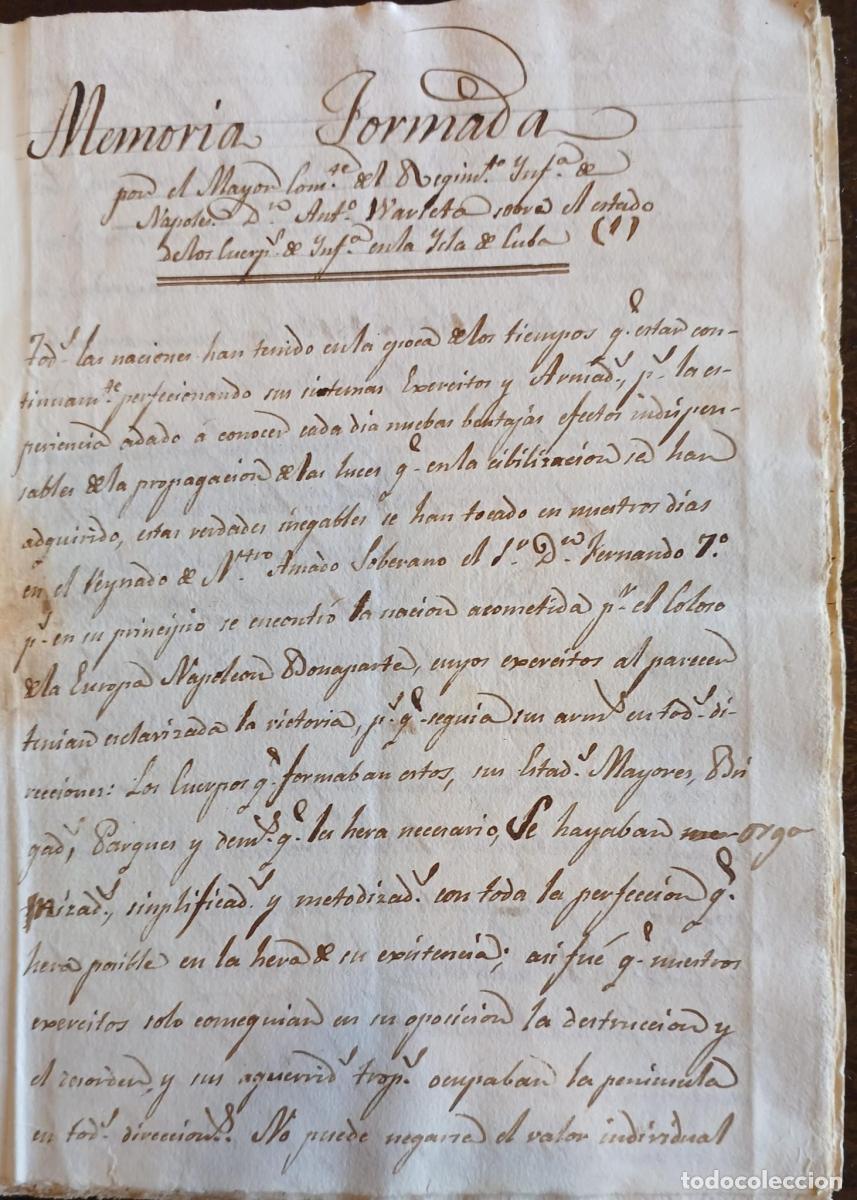 Memoria Formada
por el Mayor Com.te del Regim.to Inf.a de
Napoles D.n Ant.o Warleta sobre el estado
de los Cuerp.s de Inf.a en la Ysla de Cuba (1)
Tod.s las naciones han tenido en la epoca de los tiempos q.e estan con-
tinuam.te perfeccionando sus sistemas Exercitos y Armad.s, p.s la es-
periencia adado á conocer cada dia nuebas bentajas efectos indispen-
sables de la propagacion de las luces q.e en la cibilizacion se han
adquirido, estas verdades inegables se han tocado en nuestros dias
en el Reynado de N.tro Amado Soberano el S.r D.n Fernando 7.o
p.s en su principio se encontró la nacion acometida p.r el Coloso
de la Europa Napoleon Bonaparte, cuyos exercitos al parecer
tenian esclavizada la victoria, p.s q.e seguia sus arm.s en tod.s di-
recciones: Los Cuerpos q.e formaban estos, sus Estad.s Mayores, Bri
gad.s, Parques y dem.s q.e les hera necesario, Se hayaban orga
nizad.s, simplificad.s y metodizad.s con toda la perfeccion q.e
hera posible en la hera de su existencia; asi fué q.e nuestros
exercitos solo conseguian en su oposicion la destruccion y
el desorden, y sus aguerrid.s trop.s ocupaban la peninsula
en tod.s direccion.s. No puede negarse el valor individual
todocoleccion